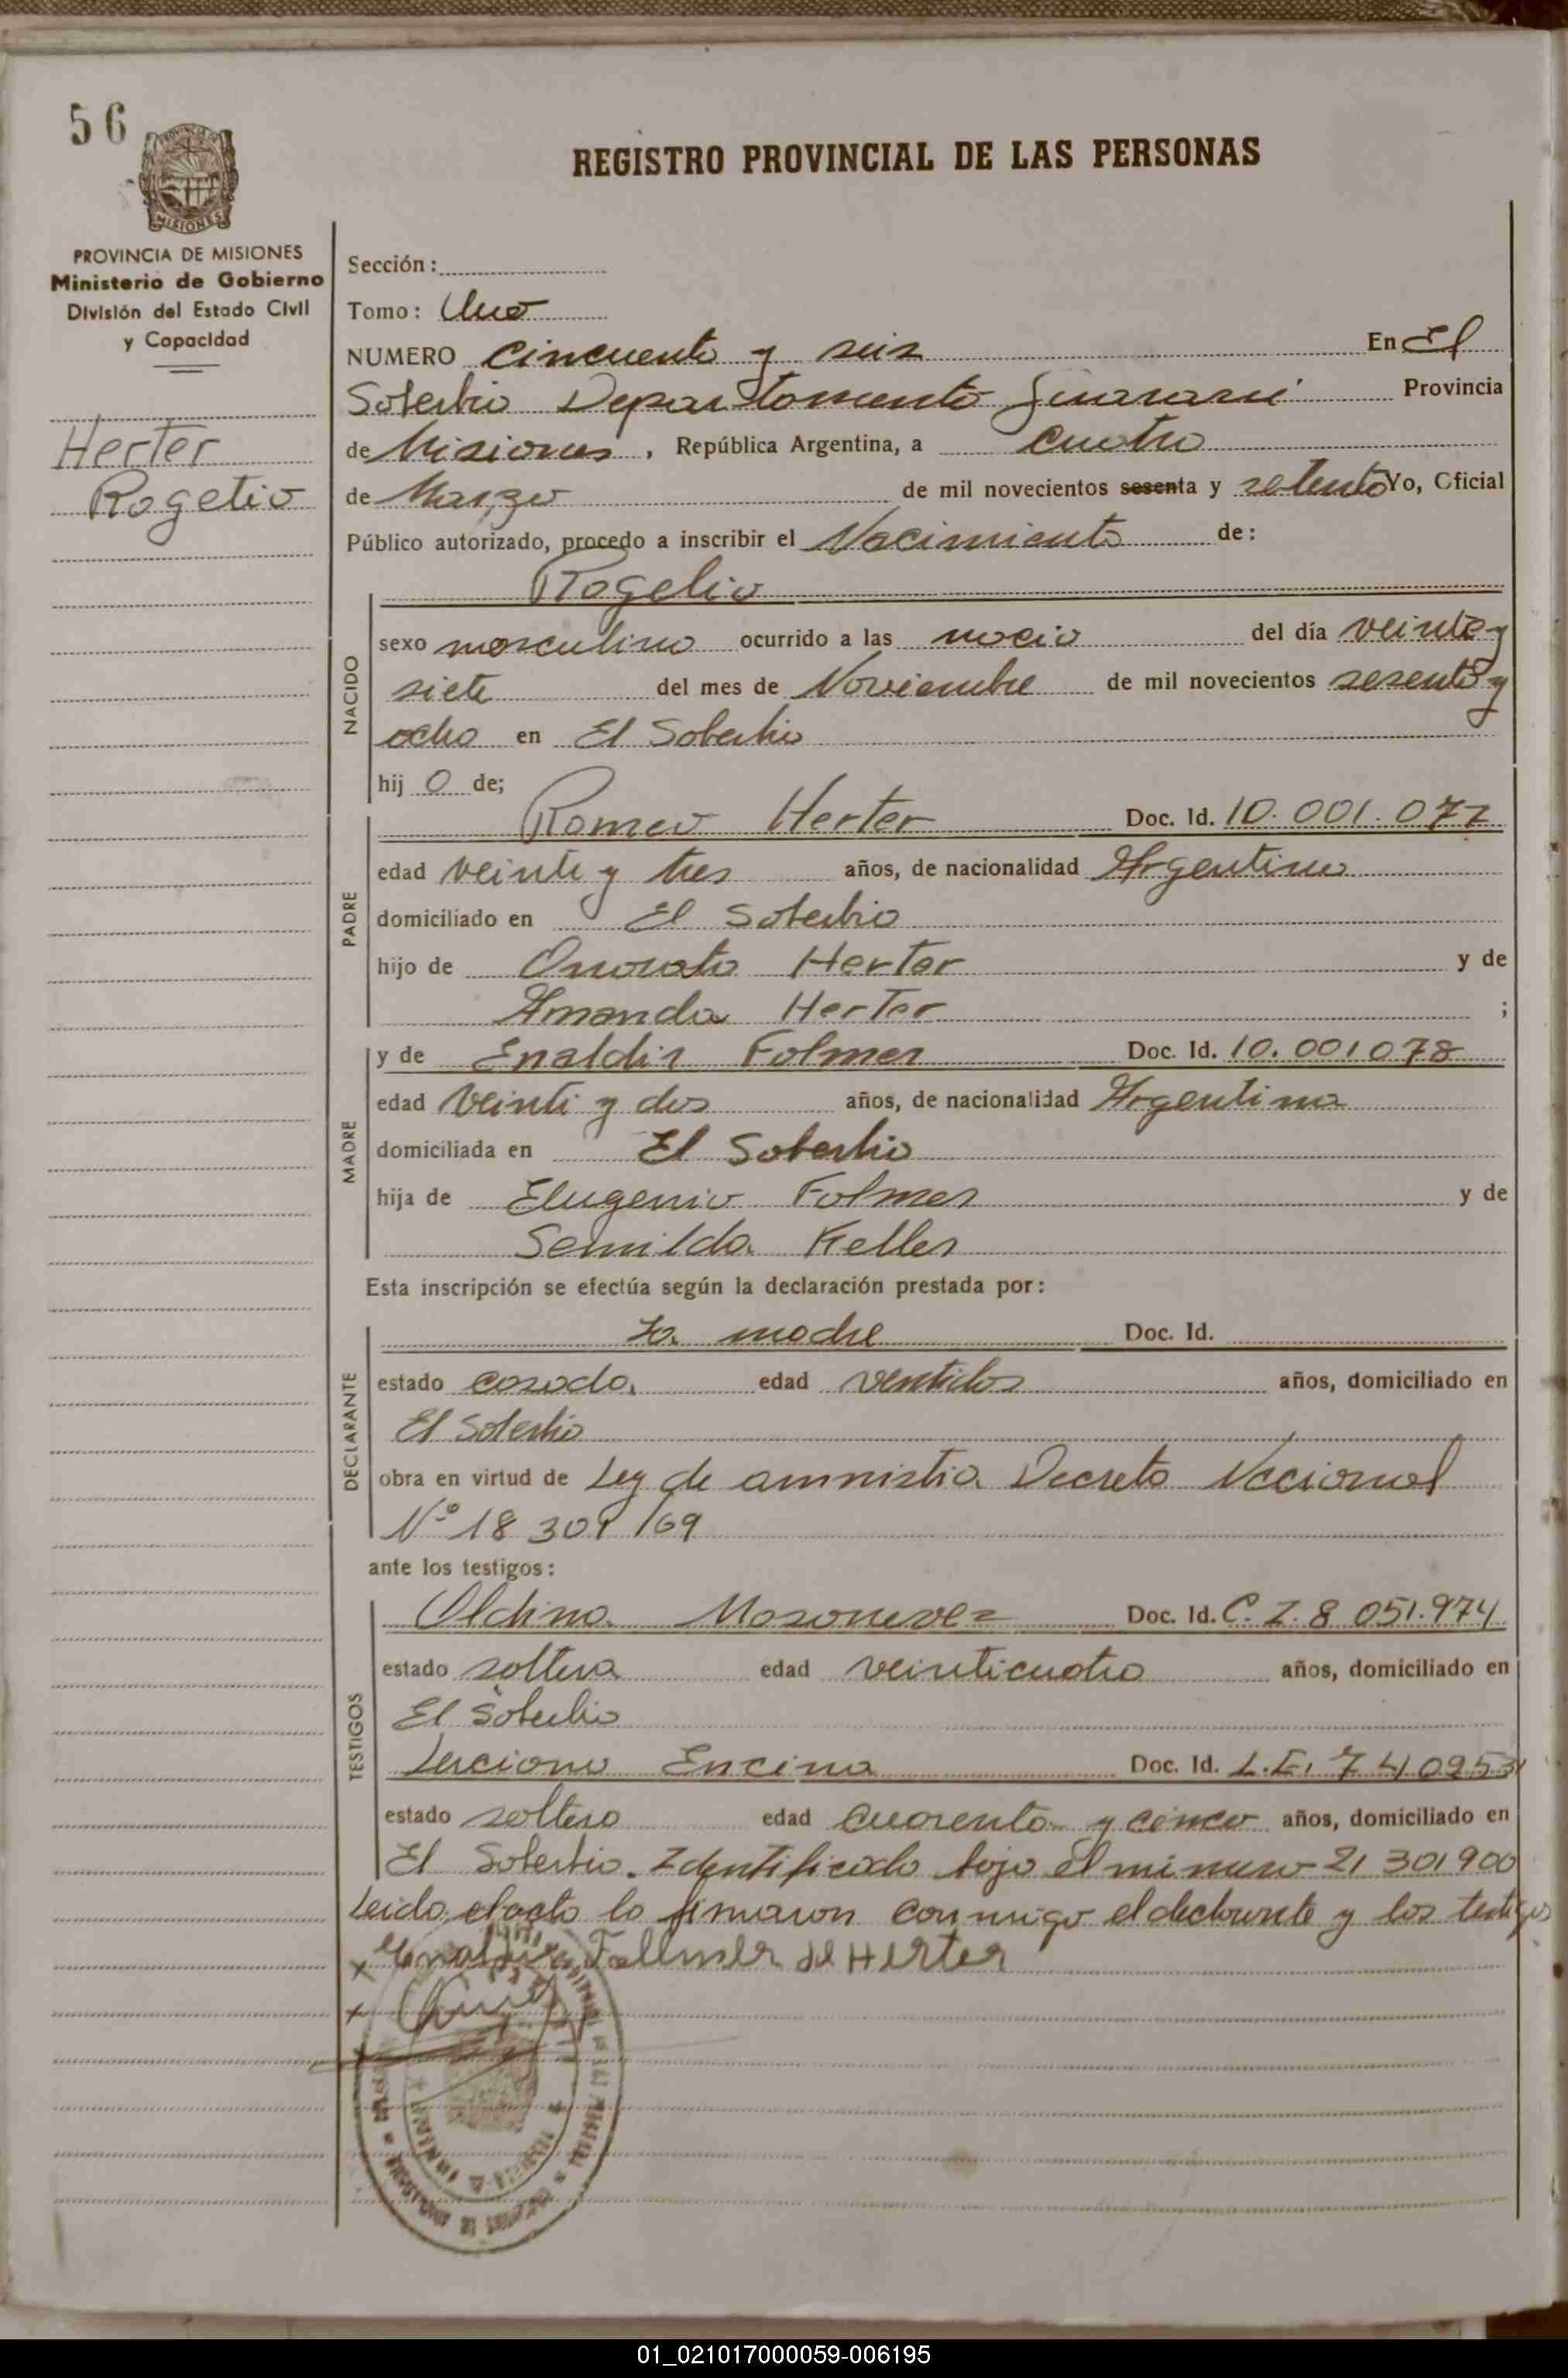 56
PROVINCIA DE MISIONES
Ministerio de Gobierno
División del Estado Civil
y Capacidad
Herter
Rogelio
REGISTRO PROVINCIAL DE LAS PERSONAS
Sección:
Tomo: Uno
NUMERO cincuenta y seis En El
Soberbio Departamento Guaraní Provincia
de Misiones, República Argentina, a cuatro
de Marzo de mil novecientos sesenta y setenta Yo, Oficial
Público autorizado, procedo a inscribir el Nacimiento de:
Rogelio
NACIDO
sexo masculino ocurrido a las del día veinte y
siete del mes de Noviembre de mil novecientos sesenta y
ocho en El Soberbio
hij o de;
PADRE
Romeo Herter Doc. Id. 10.001.077
edad veinte y tres años, de nacionalidad Argentino
domiciliado en El Soberbio
hijo de Onorato Herter y de
Amanda Herter ;
MADRE
y de Enaldir Folmer Doc. Id. 10.001078
edad veinti y dos años, de nacionalidad Argentina
domiciliada en El Soberbio
hija de Eugenio Folmer y de
Semilda Keller
Esta inscripción se efectúa según la declaración prestada por:
DECLARANTE
La madre Doc. Id.
estado casada edad ventidos años, domiciliado en
El Soberbio
obra en virtud de Ley de amnistia Decreto Nacional
Nº 18 301/69
ante los testigos:
TESTIGOS
Doc. Id. C.I. 8 051.974
estado soltera edad veinticuatro años, domiciliado en
El Soberbio
Luciano Encina Doc. Id. L.E. 7 410253
estado soltero edad cuarenta y cinco años, domiciliado en
El Soberbio. Identificado bajo el número 21 301900
Leido el acta lo firmaron conmigo el declarante y los testigos
x Follmer de Herter
x
01_021017000059-006195